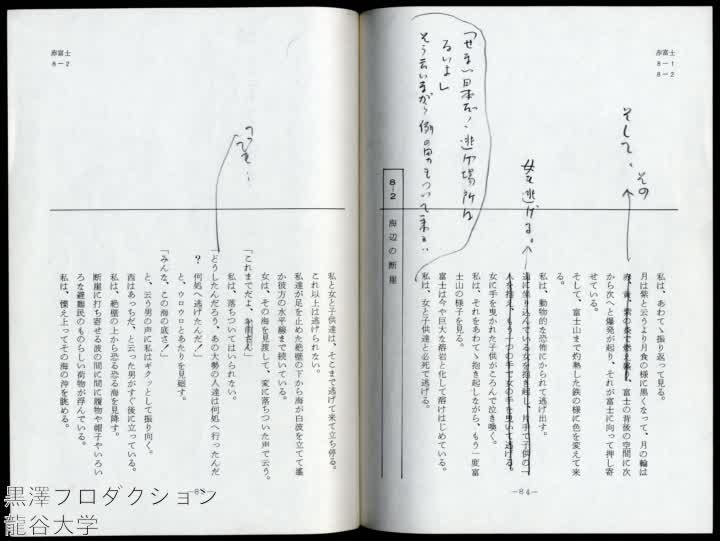 赤富士
8-1
8-2
そして、その
私は、あわてゝ振り返って見る。
月は紫と云うより月食の様に黒くなって、月の輪は
赤、黄、紫の条で燃え盛り、富士の背後の空間に次
から次へと爆発が起り、それが富士に向って押し寄
せている。
そして、富士山まで灼熱した鉄の様に色を変えて来
る。
私は、動物的な恐怖にかられて逃げ出す。
女逃げる。
道に坐り込んでいる女を抱き起し、片手で子供の一
人を抱え、もう一つの手で女の手を曳いて逃げる。
女に手を曳かれた子供がころんで泣き喚く。
私は、それをあわてゝ抱き起しながら、もう一度富
士山の様子を見る。
富士は今や巨大な溶岩と化して溶けはじめている。
私は、女と子供達と必死で逃げる。
「せまい日本だ!逃げ場所は
ないよ」
そう云いながら
8-2 海辺の断崖
-84-
赤富士
8-2
私と女と子供達は、そこまで逃げて来て立ち停る。
これ以上は逃げられない。
私達が足を止めた絶壁の下から海が白波を立てて遙
か彼方の水平線まで続いている。
女は、その海を見渡して、変に落ちついた声で云う。
「これまでだよ、
私は、落ちついてはいられない。
「どうしたんだろう、あの大勢の人達は何処へ行ったんだ
?
何処へ逃げたんだ!」
と、ウロウロとあたりを見廻す。
「みんな、この海の底さ!」
と、云う男の声に私はギクッとして振り向く。
西はあっちだ、と云った男がすぐ後に立っている。
私は、絶壁の上から恐る恐る海を見降す。
断崖に打ち寄せる波の間に間に履物や帽子やいろい
ろな避難民のものらしい荷物が浮んでいる。
私は、慄え上ってその海の沖を眺める。
黒澤プロダクション
龍谷大学